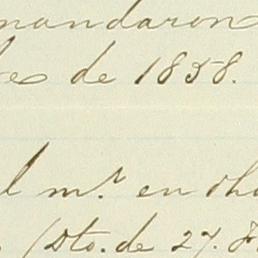 mandaron
de 1858.
l m.r en dho
(Dto. de 27.